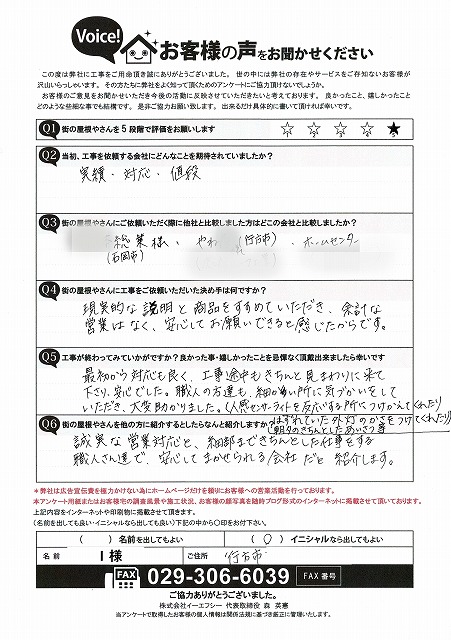 Voice!
お客様の声をお聞かせください
この度は弊社に工事をご用命頂き誠にありがとうございました。世の中には弊社の存在やサービスをご存知ないお客様が
沢山いらっしゃいます。その方たちに弊社をよく知って頂くためのアンケートにご協力頂けないでしょうか。
お客様のご意見をお聞かせいただき今後の活動に反映させていただきたいと考えております。良かったこと、嬉しかったこと
どのような些細な事でも結構です。是非ご協力お願い致します。出来るだけ具体的に書いて頂ければ幸いです。
Q1 街の屋根やさんを5段階で評価をお願いします ☆ ☆ ☆ ☆ ★
Q2 当初、工事を依頼する会社にどんなことを期待されていましたか?
実績・対応・値段
Q3 街の屋根やさんにご依頼いただく際に他社と比較しました方はどこの会社と比較しましたか?
総業様、やね (行方市)、ホームセンター
(石岡市)
Q4 街の屋根やさんに工事をご依頼いただいた決め手は何ですか?
現実的な説明と商品をすすめていただき、余計な
営業はなく、安心してお願いできると感じたからです。
Q5 工事が終わってみていかがですか?良かった事・嬉しかったことを忌憚なく頂戴出来ましたら幸いです
最初から対応も良く、工事途中もきちんと見まわりに来て
下さり、安心でした。職人の方達も、細かい所に気づかいをして
いただき、大変助かりました。(人感センサーライトを反応する所につけかえてくれたり
はずれていた外灯のかさをつけてくれたり)
朝夕のきちんとしたあいさつ等
Q6 街の屋根やさんを他の方に紹介するとしたらなんと紹介しますか
誠実な営業対応と、細部まできちんとした仕事をする
職人さん達で、安心してまかせられる会社だと紹介します。
*弊社は広告宣伝費を極力かけない為にホームページだけを頼りにお客様への営業活動を行っております。
本アンケート用紙またはお客様宅の調査風景や施工状況、お客様の顔写真を随時ブログ形式のインターネットに掲載させて頂いております。
上記内容をインターネットや印刷物に掲載させて頂きます。
(名前を出しても良い・イニシャルなら出しても良い)下記の中から○印をお付け下さい。
( )名前を出してもよい (○)イニシャルなら出してもよい
名前 I様 ご住所 行方市
FAX 029-306-6039 FAX番号
ご協力ありがとうございました。
株式会社イーエフシー 代表取締役 森 英憲
当アンケートで取得したお客様の個人情報は関係法規に基づき厳正に管理いたします。